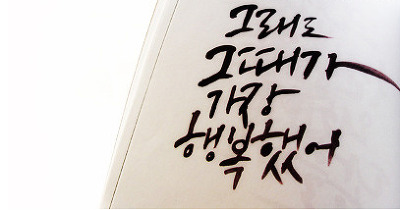 그래도
그때가
가장
행복했어